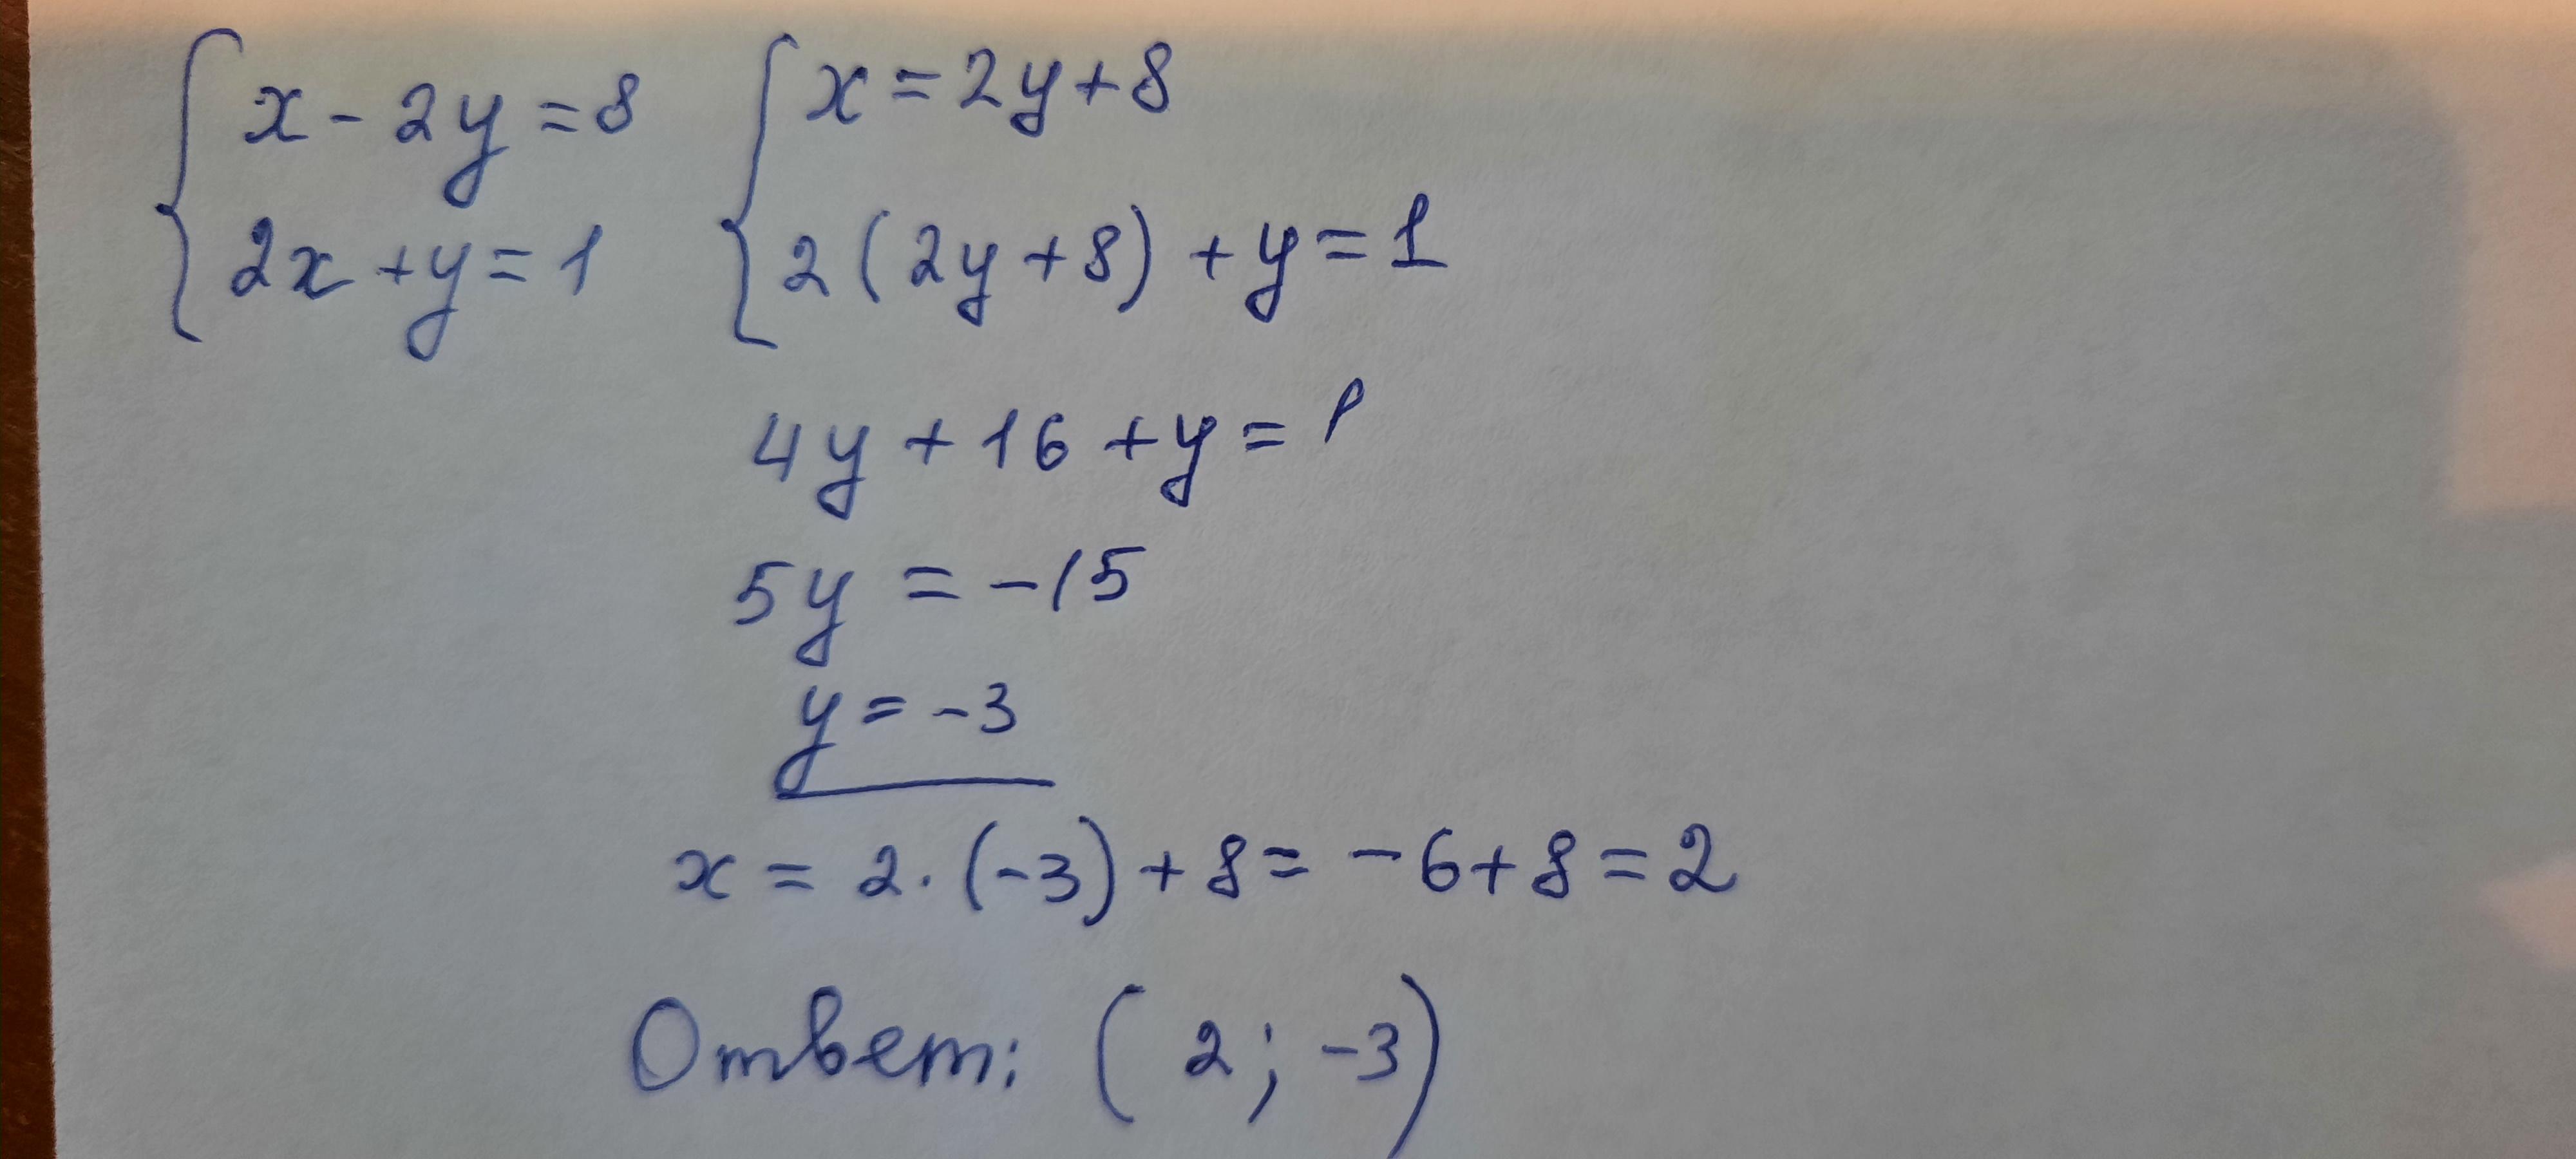 x - 2y = 8
2x + y = 1
x = 2y + 8
2(2y + 8) + y = 1
4y + 16 + y = 1
5y = -15
y = -3
x = 2 · (-3) + 8 = -6 + 8 = 2
Ответ: (2; -3)